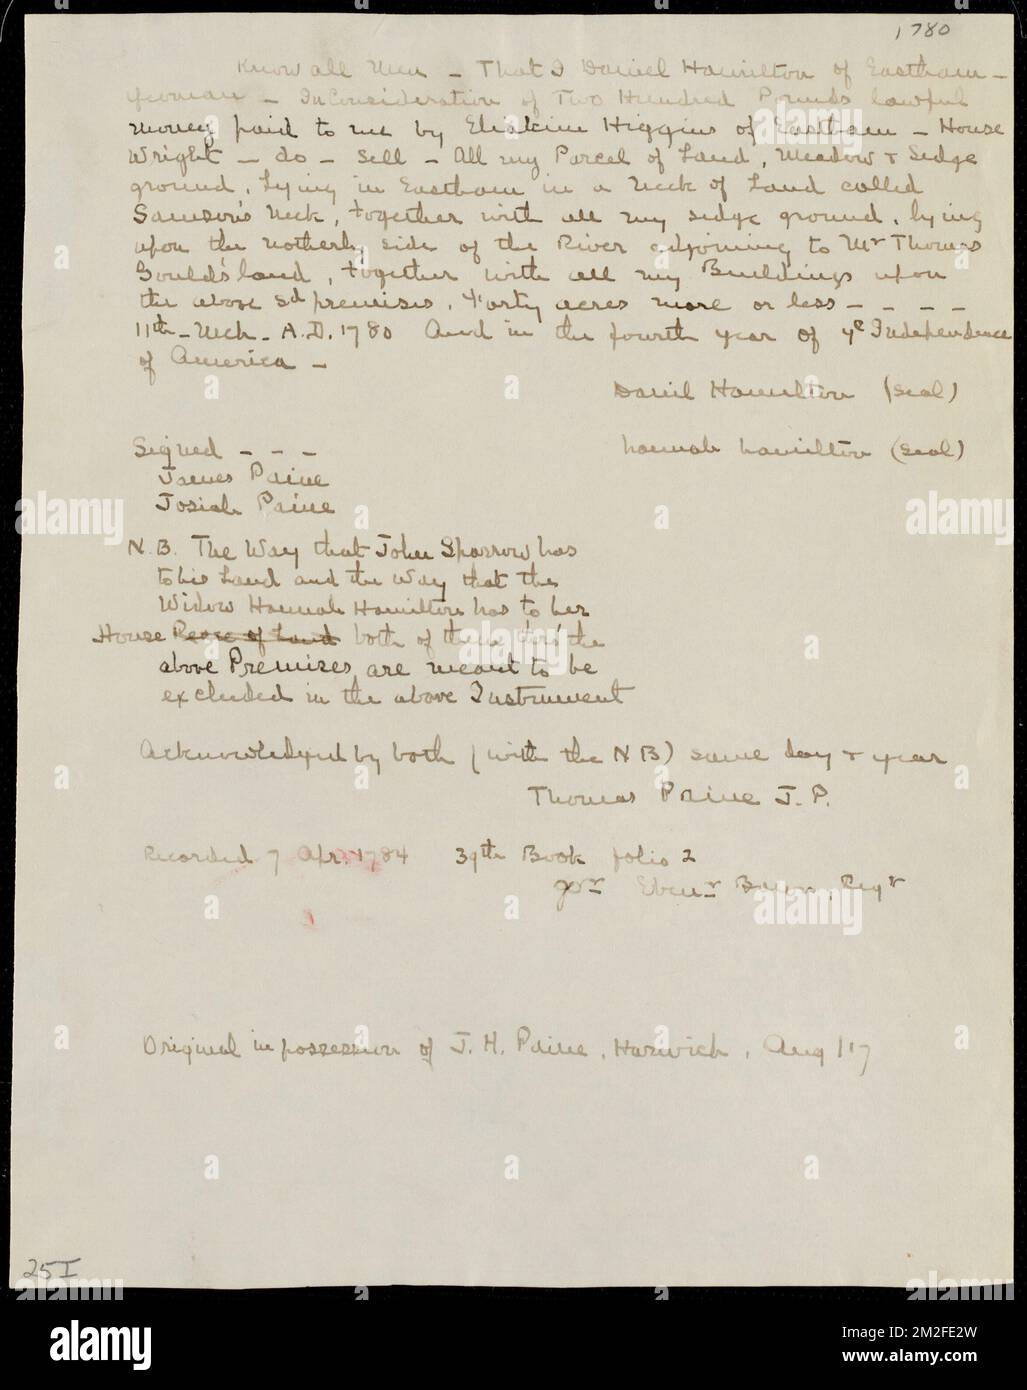 1780
Know all Men – That I Daniel Hamilton of Eastham –
yeoman – In Consideration of Two Hundred Pounds lawful
money paid to me by Eliakim Higgins of Eastham – House
Wright – do – sell – All my Parcel of Land, Meadow + Sedge
ground, Lying in Eastham in a Neck of Land called
Samson's Neck, together with all my sedge ground, lying
upon the notherly side of the River adjoining to Mr Thomas
Gould's land, together with all my Buildings upon
the above sd premises, Forty acres more or less – – – –
11th – Mch – A.D. 1780 And in the fourth year of ye Independence
of America –
Daniel Hamilton (seal)
Signed – – –
hannah hamilton (seal)
James Paine
Josiah Paine
N.B. The Way that John Sparrow has
to his Land and the Way that the
Widow Hannah Hamilton has to her
House Peace of Land both of them thro' the
above Premizes are meant to be
excluded in the above Instrument
Acknowledged by both (with the N B) same day + year
Thomas Paine J. P.
Recorded 7 Apr. 1784 39th Book folio 2
pr Ebenr Bacon, Regr
Original in possession of J. H. Paine, Harwich, Aug 1'7
25I
alamy
a
alamy
Image ID: 2M2FE2W
www.alamy.com